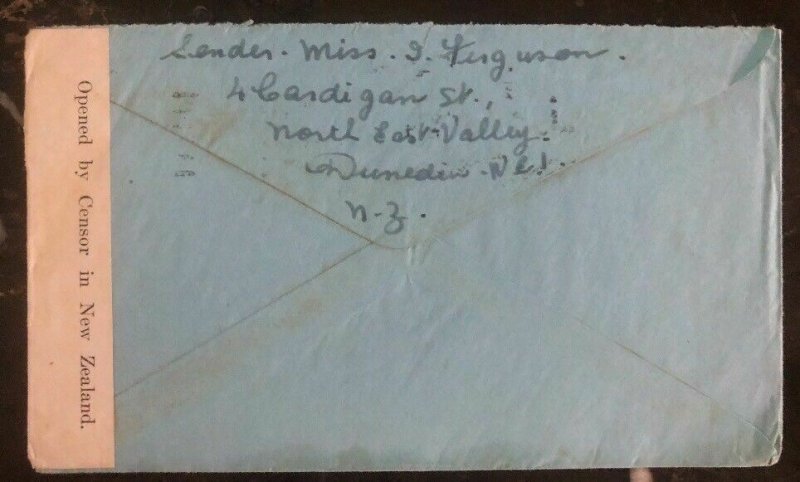 Sender. Miss. I. Ferguson.
4 Cardigan St.,
North East Valley.
Dunedin. N.E.1.
N.Z.
Opened by Censor in New Zealand.